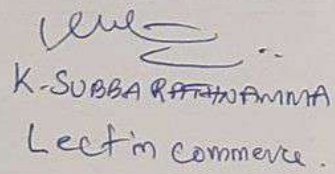 K. SUBBA RATHNAMMA
Lect in commerce.